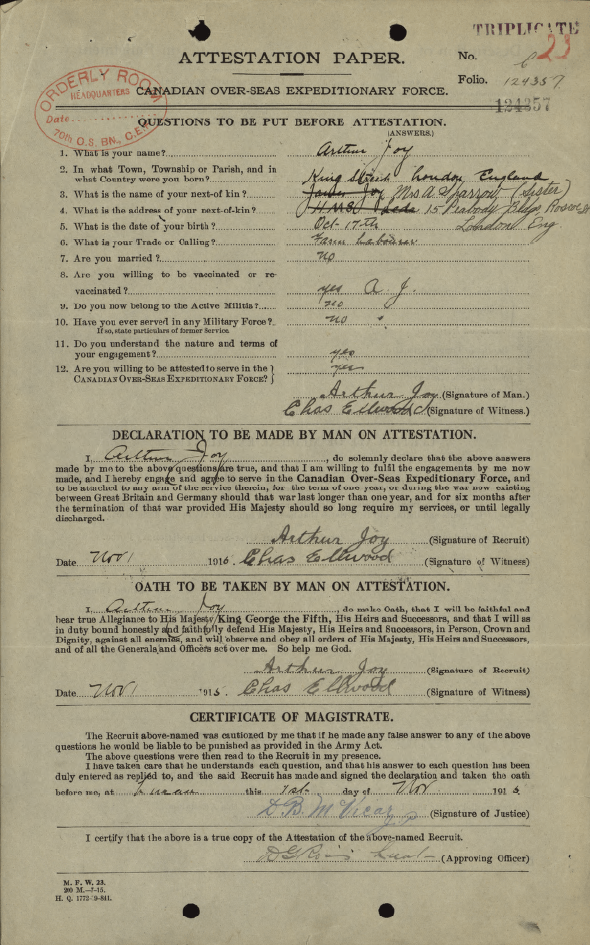 TRIPLICATE
ATTESTATION PAPER.
No. 6 23
Folio. 124357
124357
ORDERLY ROOM
HEADQUARTERS
Date
70th O.S. BN., C.E.F.
CANADIAN OVER-SEAS EXPEDITIONARY FORCE.
QUESTIONS TO BE PUT BEFORE ATTESTATION.
(ANSWERS.)
1. What is your name? Arthur Joy
2. In what Town, Township or Parish, and in
what Country were you born? King Street London England
3. What is the name of your next-of kin? James Joy Mrs A Sparrow (Sister)
4. What is the address of your next-of-kin? H.M.S. 15 Peabody Bldgs
London Eng
5. What is the date of your birth? Oct 17th
6. What is your Trade or Calling? Farm Labourer
7. Are you married? no
8. Are you willing to be vaccinated or re-
vaccinated? yes A. J.
9. Do you now belong to the Active Militia? no
10. Have you ever served in any Military Force? no
If so, state particulars of former Service.
11. Do you understand the nature and terms of
your engagement? yes
12. Are you willing to be attested to serve in the
CANADIAN OVER-SEAS EXPEDITIONARY FORCE? yes
Arthur Joy (Signature of Man.)
Chas Ellwood (Signature of Witness.)
DECLARATION TO BE MADE BY MAN ON ATTESTATION.
I, Arthur Joy, do solemnly declare that the above answers
made by me to the above questions are true, and that I am willing to fulfil the engagements by me now
made, and I hereby engage and agree to serve in the Canadian Over-Seas Expeditionary Force, and
to be attached to any arm of the service therein, for the term of one year, or during the war now existing
between Great Britain and Germany should that war last longer than one year, and for six months after
the termination of that war provided His Majesty should so long require my services, or until legally
discharged.
Arthur Joy (Signature of Recruit)
Date Nov 1 1915. Chas Ellwood (Signature of Witness)
OATH TO BE TAKEN BY MAN ON ATTESTATION.
I, Arthur Joy, do make Oath, that I will be faithful and
bear true Allegiance to His Majesty King George the Fifth, His Heirs and Successors, and that I will as
in duty bound honestly and faithfully defend His Majesty, His Heirs and Successors, in Person, Crown and
Dignity, against all enemies, and will observe and obey all orders of His Majesty, His Heirs and Successors,
and of all the Generals and Officers set over me. So help me God.
Arthur Joy (Signature of Recruit)
Date Nov 1 1915 Chas Ellwood (Signature of Witness)
CERTIFICATE OF MAGISTRATE.
The Recruit above-named was cautioned by me that if he made any false answer to any of the above
questions he would be liable to be punished as provided in the Army Act.
The above questions were then read to the Recruit in my presence.
I have taken care that he understands each question, and that his answer to each question has been
duly entered as replied to, and the said Recruit has made and signed the declaration and taken the oath
before me, at this 1st day of Nov 1915
D. B. McVicar (Signature of Justice)
I certify that the above is a true copy of the Attestation of the above-named Recruit.
(Approving Officer)
M. F. W. 23.
200 M.—7-15.
H. Q. 1772-39-841.